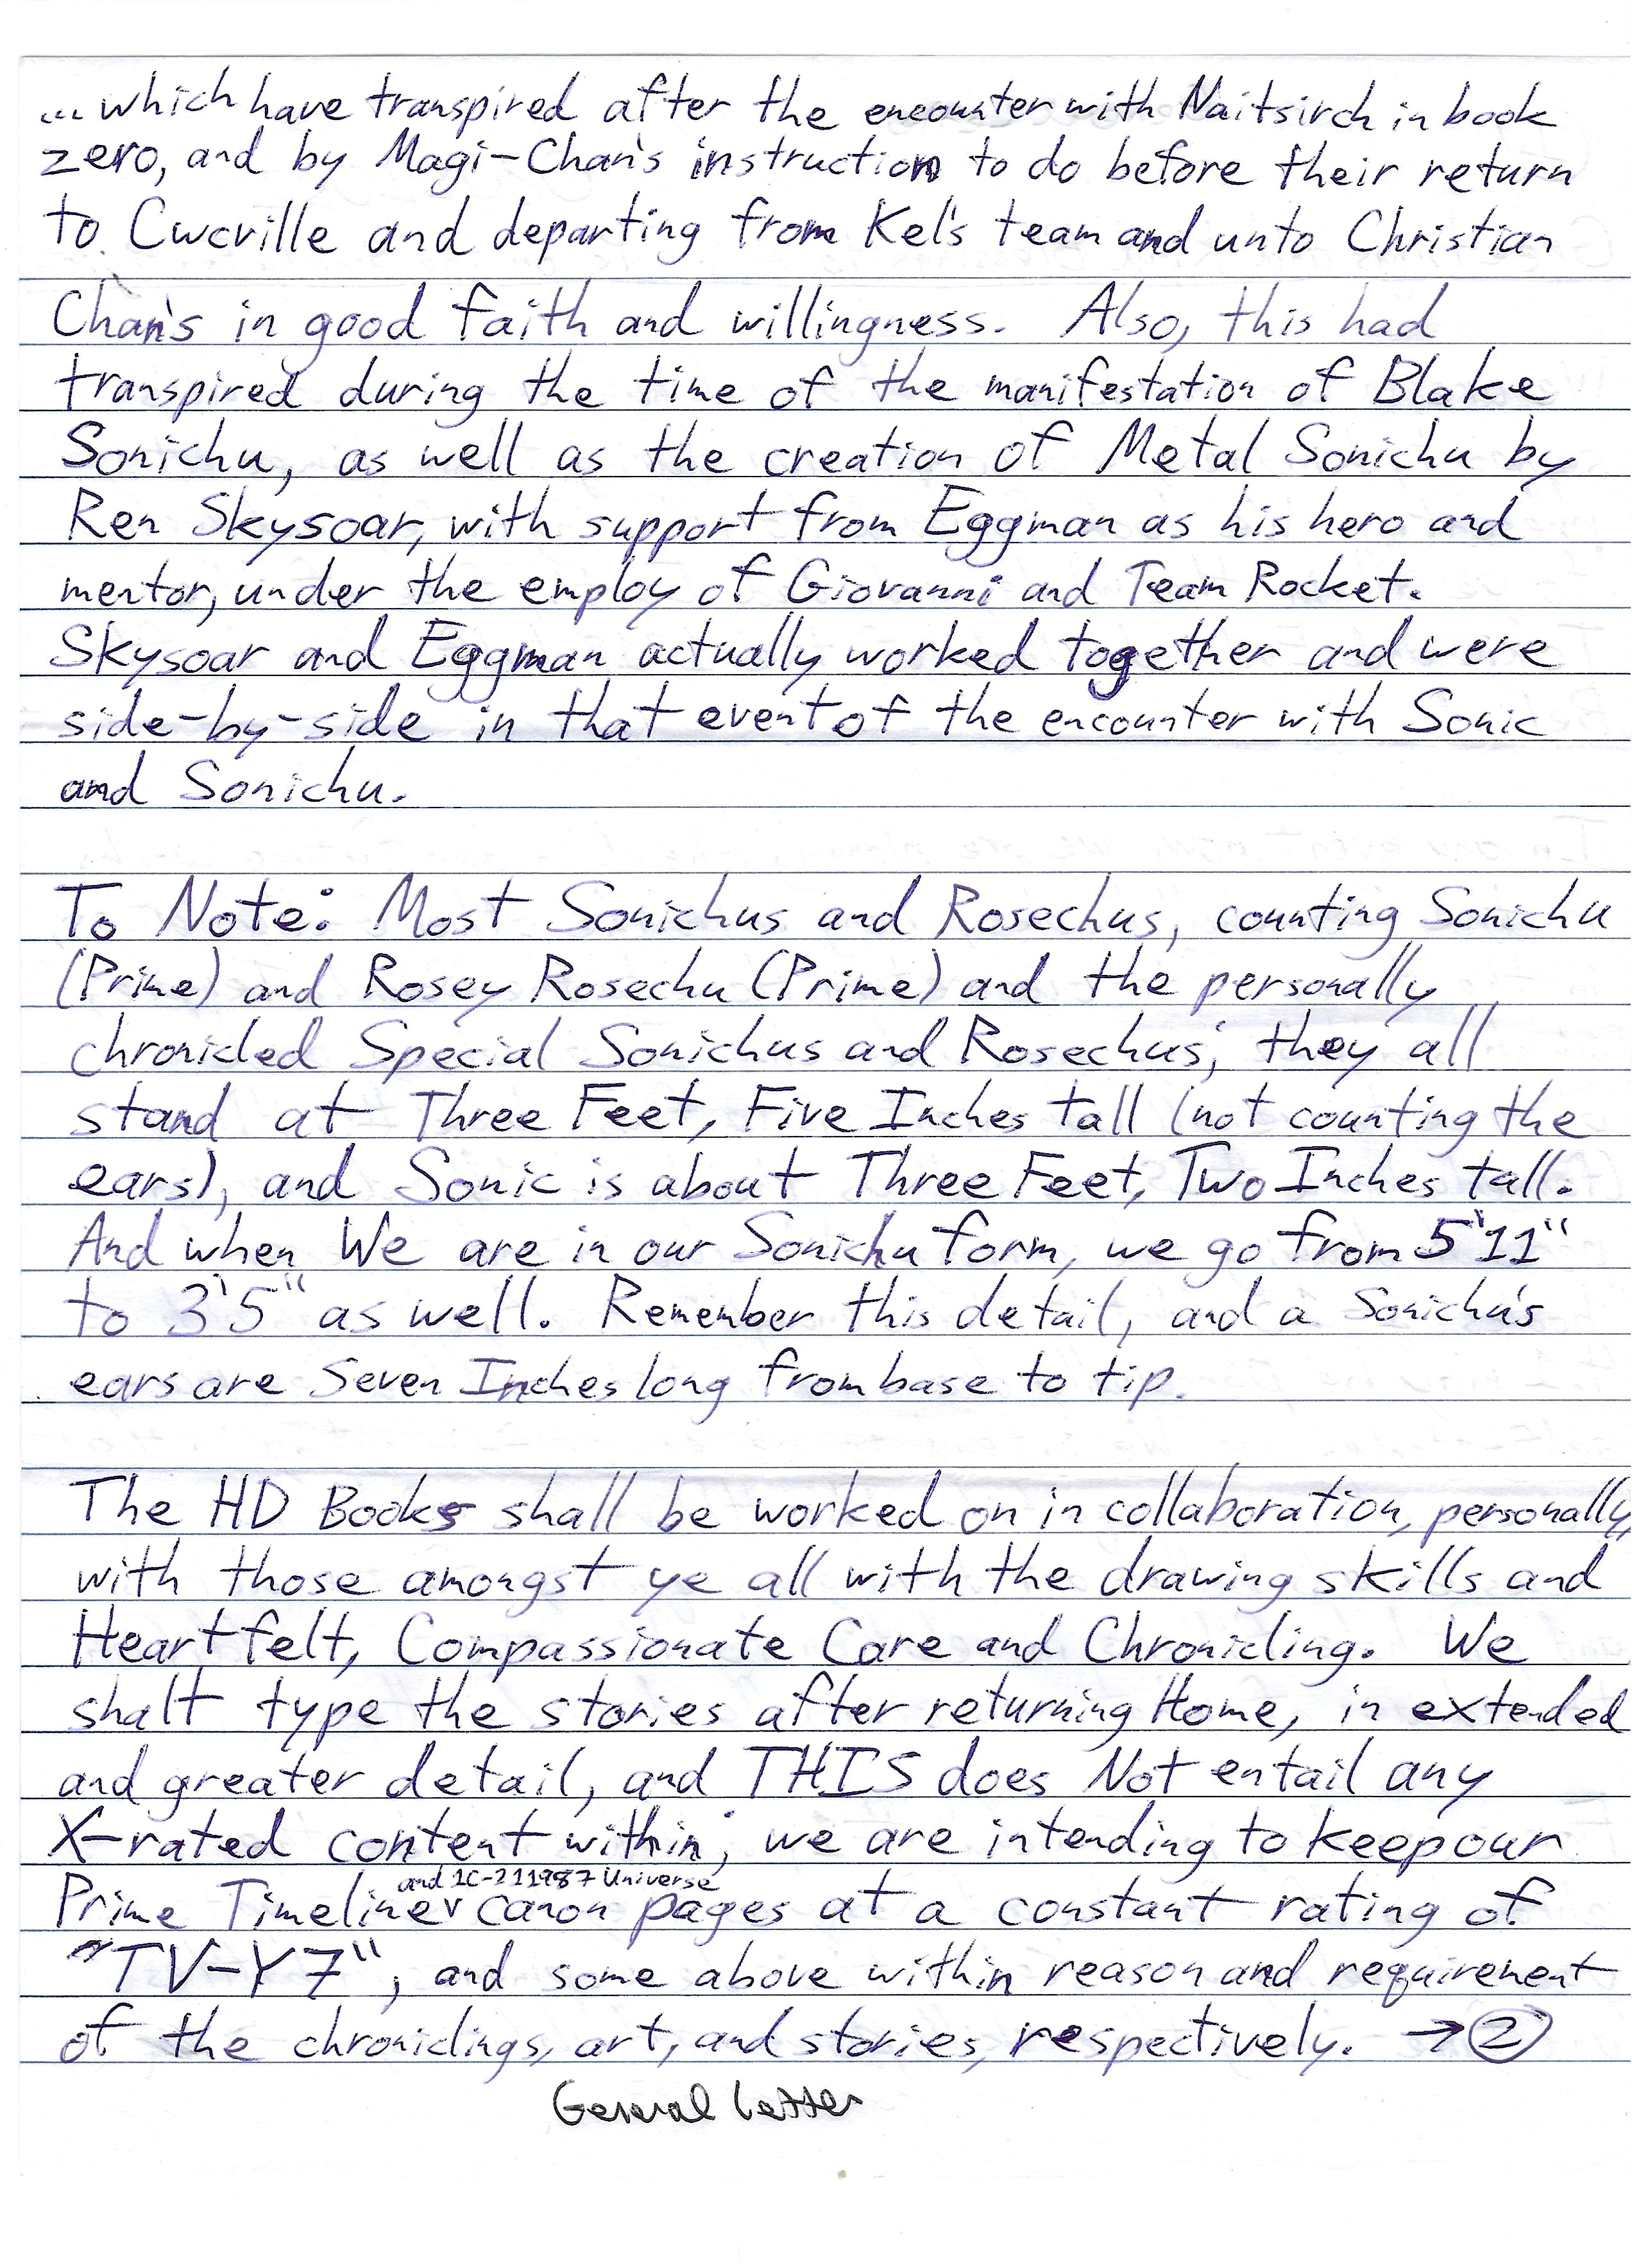 ... which have transpired after the encounter with Naitsirch in book
zero, and by Magi-Chan's instruction to do before their return
to Cwcville and departing from Kel's team and unto Christian
Chan's in good faith and willingness. Also, this had
transpired during the time of the manifestation of Blake
Sonichu, as well as the creation of Metal Sonichu by
Ren Skysoar, with support from Eggman as his hero and
mentor, under the employ of Giovanni and Team Rocket.
Skysoar and Eggman actually worked together and were
side-by-side in that event of the encounter with Sonic
and Sonichu.
To Note: Most Sonichus and Rosechus, counting Sonichu
(Prime) and Rosey Rosechu (Prime) and the personally
chronicled Special Sonichus and Rosechus; they all
stand at Three Feet, Five Inches tall (not counting the
ears), and Sonic is about Three Feet, Two Inches tall.
And when We are in our Sonichu form, we go from 5'11"
to 3'5" as well. Remember this detail, and a Sonichu's
ears are Seven Inches long from base to tip.
The HD Books shall be worked on in collaboration, personally,
with those amongst ye all with the drawing skills and
Heartfelt, Compassionate Care and Chronicling. We
shalt type the stories after returning Home, in extended
and greater detail, and THIS does Not entail any
X-rated content within; we are intending to keep our
and 1C-211987 Universe
Prime Timeline v canon pages at a constant rating of
"TV-Y7", and some above within reason and requirement
of the chroniclings, art, and stories, respectively. → 2
General Letter